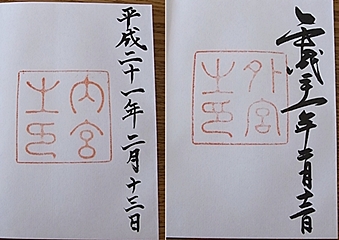 平成二十一年二月十三日
内宮
之印
平成二十一年二月
外宮
之印